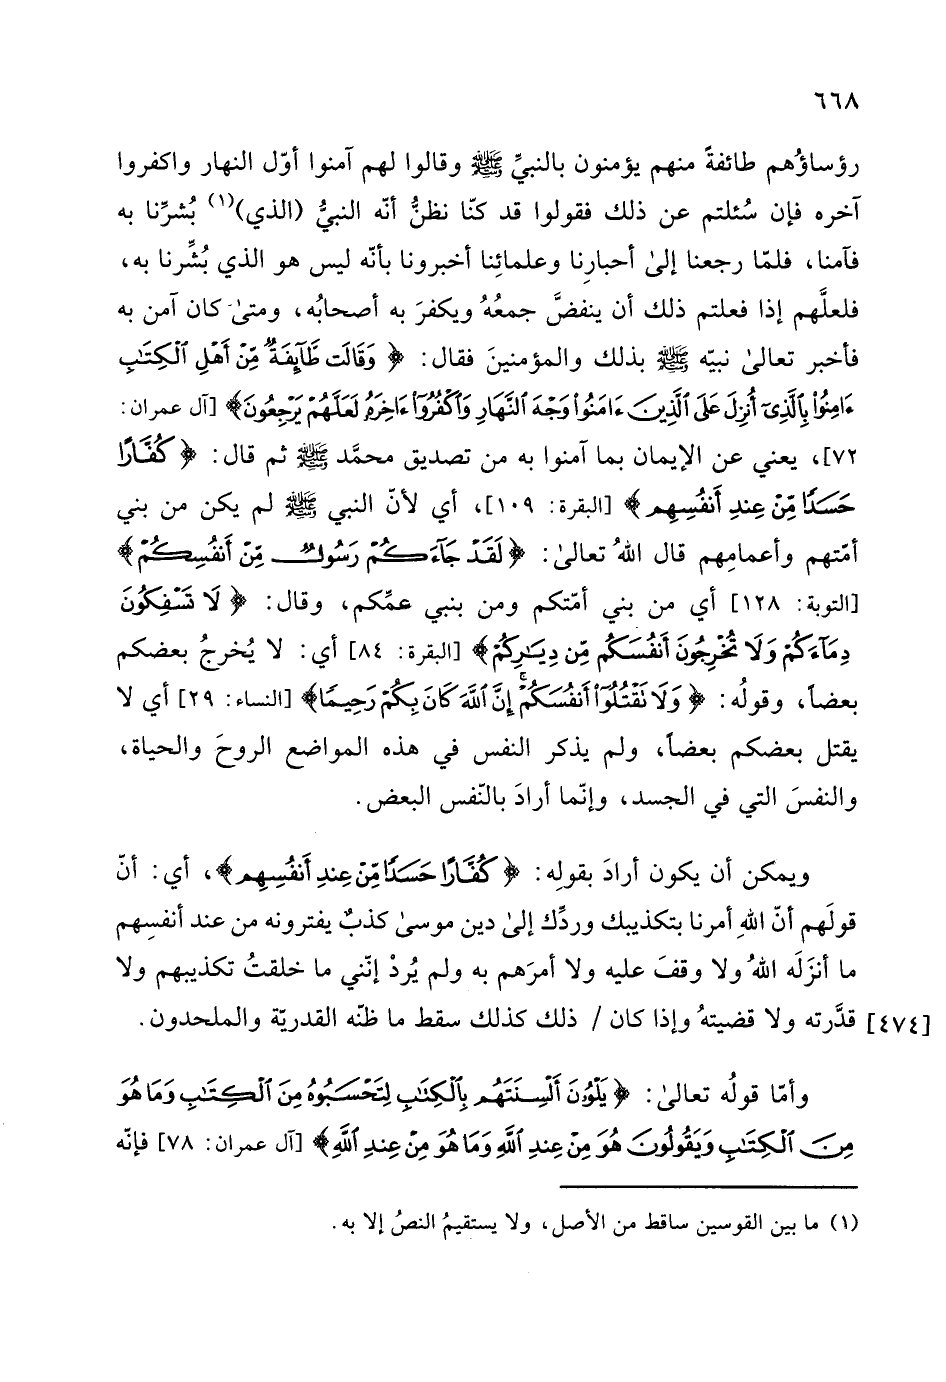 ٦٦٨
رؤساؤُهم طائفةً منهم يؤمنون بالنبيِّ ﷺ وقالوا لهم آمنوا أوّل النهار واكفروا
آخره فإن سُئلتم عن ذلك فقولوا قد كنّا نظنُّ أنّه النبيُّ (الذي)(١) بُشرِّنا به
فآمنا، فلمّا رجعنا إلىٰ أحبارِنا وعلمائِنا أخبرونا بأنّه ليس هو الذي بُشِّرنا به،
فلعلَّهم إذا فعلتم ذلك أن ينفضَّ جمعُهُ ويكفرَ به أصحابُه، ومتىٰ كان آمن به
فأخبر تعالىٰ نبيّه ﷺ بذلك والمؤمنينَ فقال: ﴿وَقَالَت طَّآئِفَةٌ مِّنْ أَهْلِ ٱلْكِتَٰبِ
ءَامِنُوا۟ بِٱلَّذِىٓ أُنزِلَ عَلَى ٱلَّذِينَ ءَامَنُوا۟ وَجْهَ ٱلنَّهَارِ وَٱكْفُرُوٓا۟ ءَاخِرَهُۥ لَعَلَّهُمْ يَرْجِعُونَ﴾ [آل عمران:
٧٢]، يعني عن الإيمان بما آمنوا به من تصديق محمَّد ﷺ ثم قال: ﴿كُفَّارًا
حَسَدًا مِّنْ عِندِ أَنفُسِهِم﴾ [البقرة: ١٠٩]، أي لأنّ النبي ﷺ لم يكن من بني
أمّتهم وأعمامِهم قال اللهُ تعالىٰ: ﴿لَقَدْ جَآءَكُمْ رَسُولٌ مِّنْ أَنفُسِكُمْ﴾
[التوبة: ١٢٨] أي من بني أمّتكم ومن بنبي عمِّكم، وقال: ﴿لَا تَسْفِكُونَ
دِمَآءَكُمْ وَلَا تُخْرِجُونَ أَنفُسَكُم مِّن دِيَٰرِكُمْ﴾ [البقرة: ٨٤] أي: لا يُخرجُ بعضكم
بعضاً، وقولُه: ﴿وَلَا تَقْتُلُوٓا۟ أَنفُسَكُمْ ۚ إِنَّ ٱللَّهَ كَانَ بِكُمْ رَحِيمًا﴾ [النساء: ٢٩] أي لا
يقتل بعضكم بعضاً، ولم يذكر النفس في هذه المواضع الروحَ والحياة،
والنفسَ التي في الجسد، وإنّما أرادَ بالنّفس البعض.
ويمكن أن يكون أرادَ بقولِه: ﴿كُفَّارًا حَسَدًا مِّنْ عِندِ أَنفُسِهِم﴾، أي: أنّ
قولَهم أنّ اللهِ أمرنا بتكذيبك وردِّك إلىٰ دين موسىٰ كذبٌ يفترونه من عند أنفسِهم
ما أنزَلَه اللهُ ولا وقفَ عليه ولا أمرَهم به ولم يُردْ إنّني ما خلقتُ تكذيبهم ولا
[٤٧٤] قدَّرته ولا قضيتهُ وإذا كان / ذلك كذلك سقط ما ظنّه القدريّة والملحدون.
وأمّا قولُه تعالىٰ: ﴿يَلْوُۥنَ أَلْسِنَتَهُم بِٱلْكِتَٰبِ لِتَحْسَبُوهُ مِنَ ٱلْكِتَٰبِ وَمَا هُوَ
مِنَ ٱلْكِتَٰبِ وَيَقُولُونَ هُوَ مِنْ عِندِ ٱللَّهِ وَمَا هُوَ مِنْ عِندِ ٱللَّهِ﴾ [آل عمران: ٧٨] فإنّه
(١) ما بين القوسين ساقط من الأصل، ولا يستقيمُ النصُ إلا به.